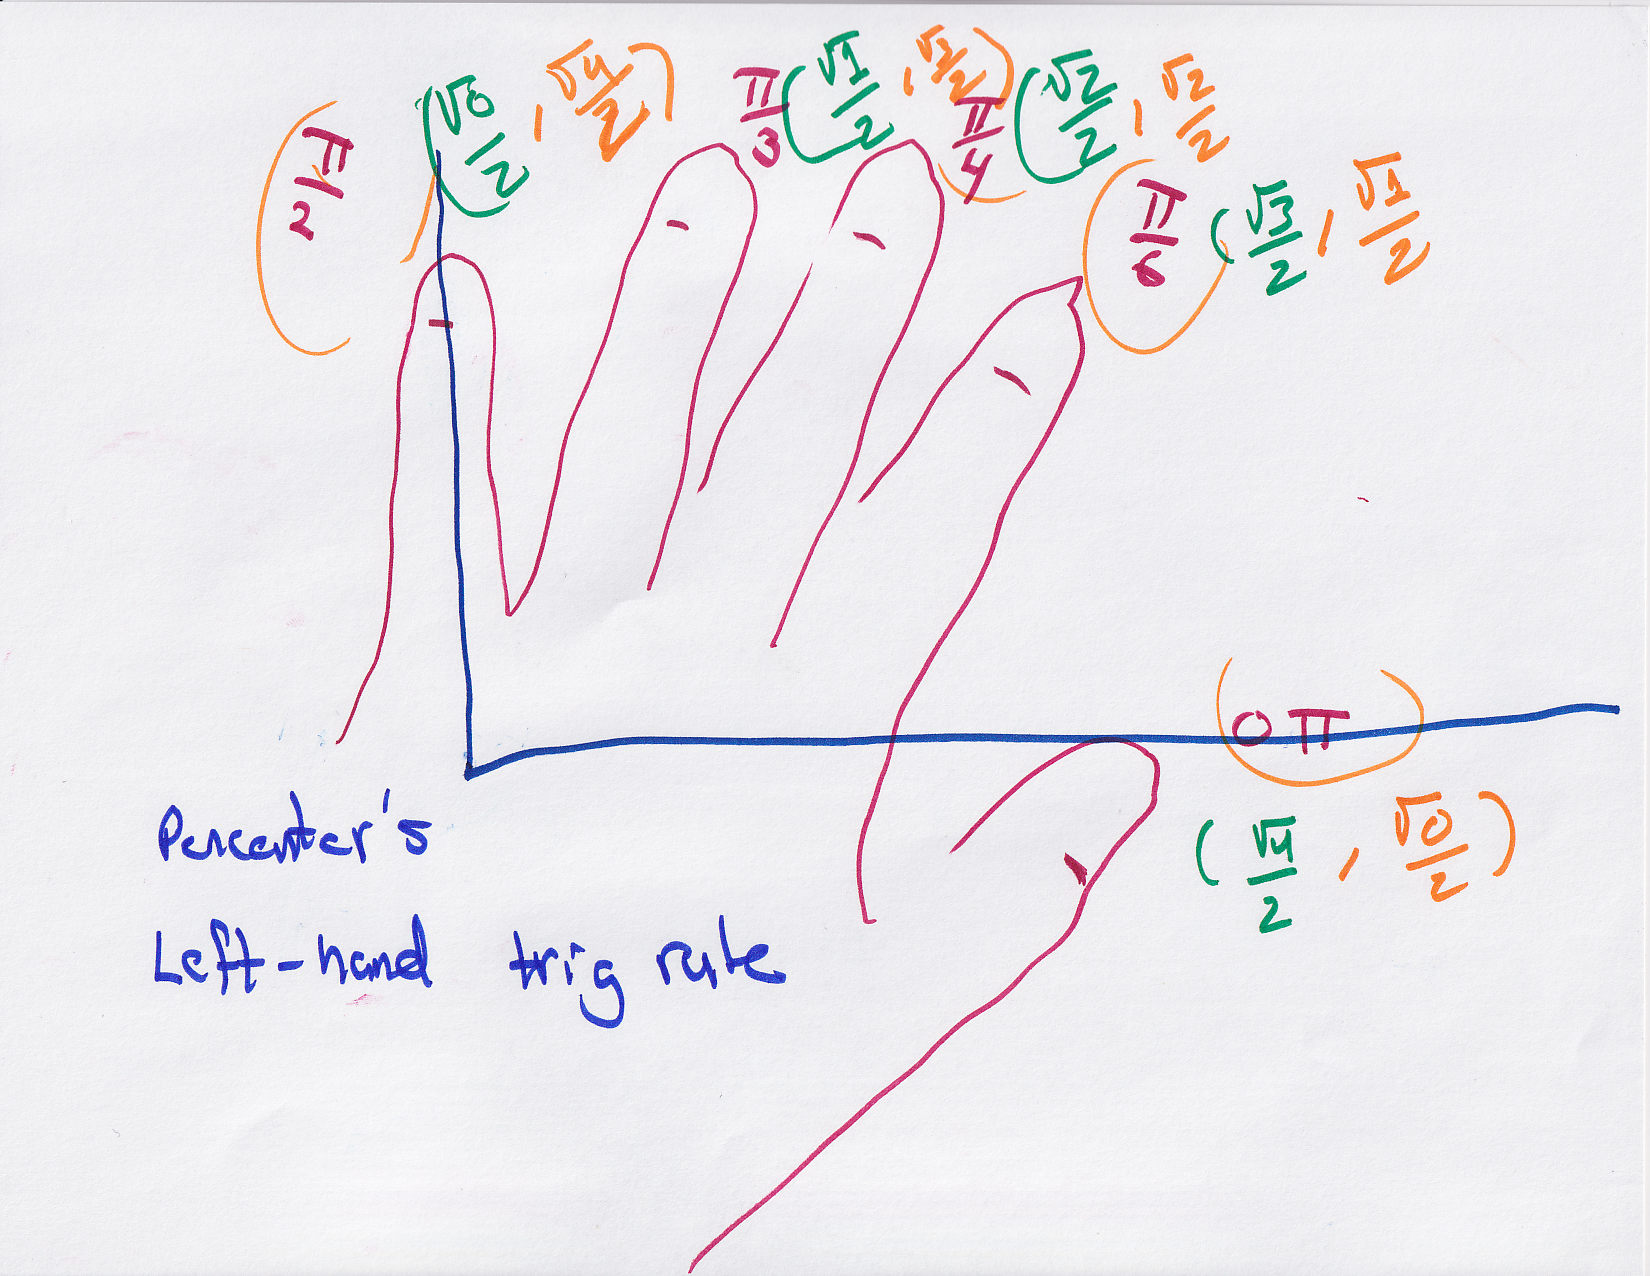 π/2 (√0/2, √4/2)
π/3 (√1/2, √3/2)
π/4 (√2/2, √2/2
π/6 (√3/2, √1/2
0π
(√4/2, √0/2)
Left-hand trig rule